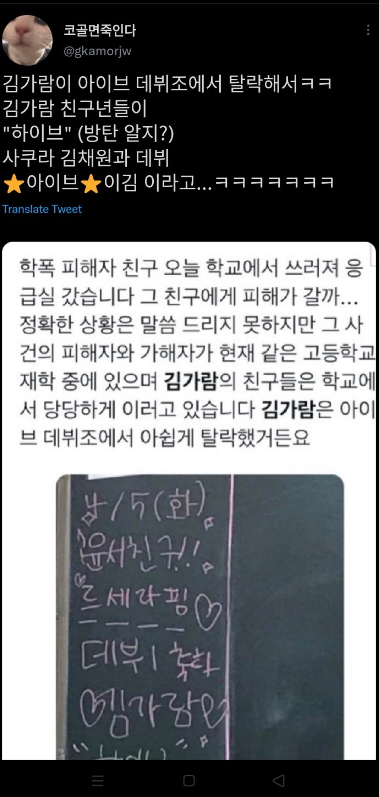 코골면죽인다
@gkamorjw
김가람이 아이브 데뷔조에서 탈락해서ㅋㅋ
김가람 친구년들이
"하이브" (방탄 알지?)
사쿠라 김채원과 데뷔
⭐아이브⭐이김 이라고...ㅋㅋㅋㅋㅋㅋㅋ
Translate Tweet
학폭 피해자 친구 오늘 학교에서 쓰러져 응
급실 갔습니다 그 친구에게 피해가 갈까...
정확한 상황은 말씀 드리지 못하지만 그 사
건의 피해자와 가해자가 현재 같은 고등학교
재학 중에 있으며 김가람의 친구들은 학교에
서 당당하게 이러고 있습니다 김가람은 아이
브 데뷔조에서 아쉽게 탈락했거든요
4/5(화)
윤서친구!!
르세라핌♡
데뷔 축하
♡김가람♡